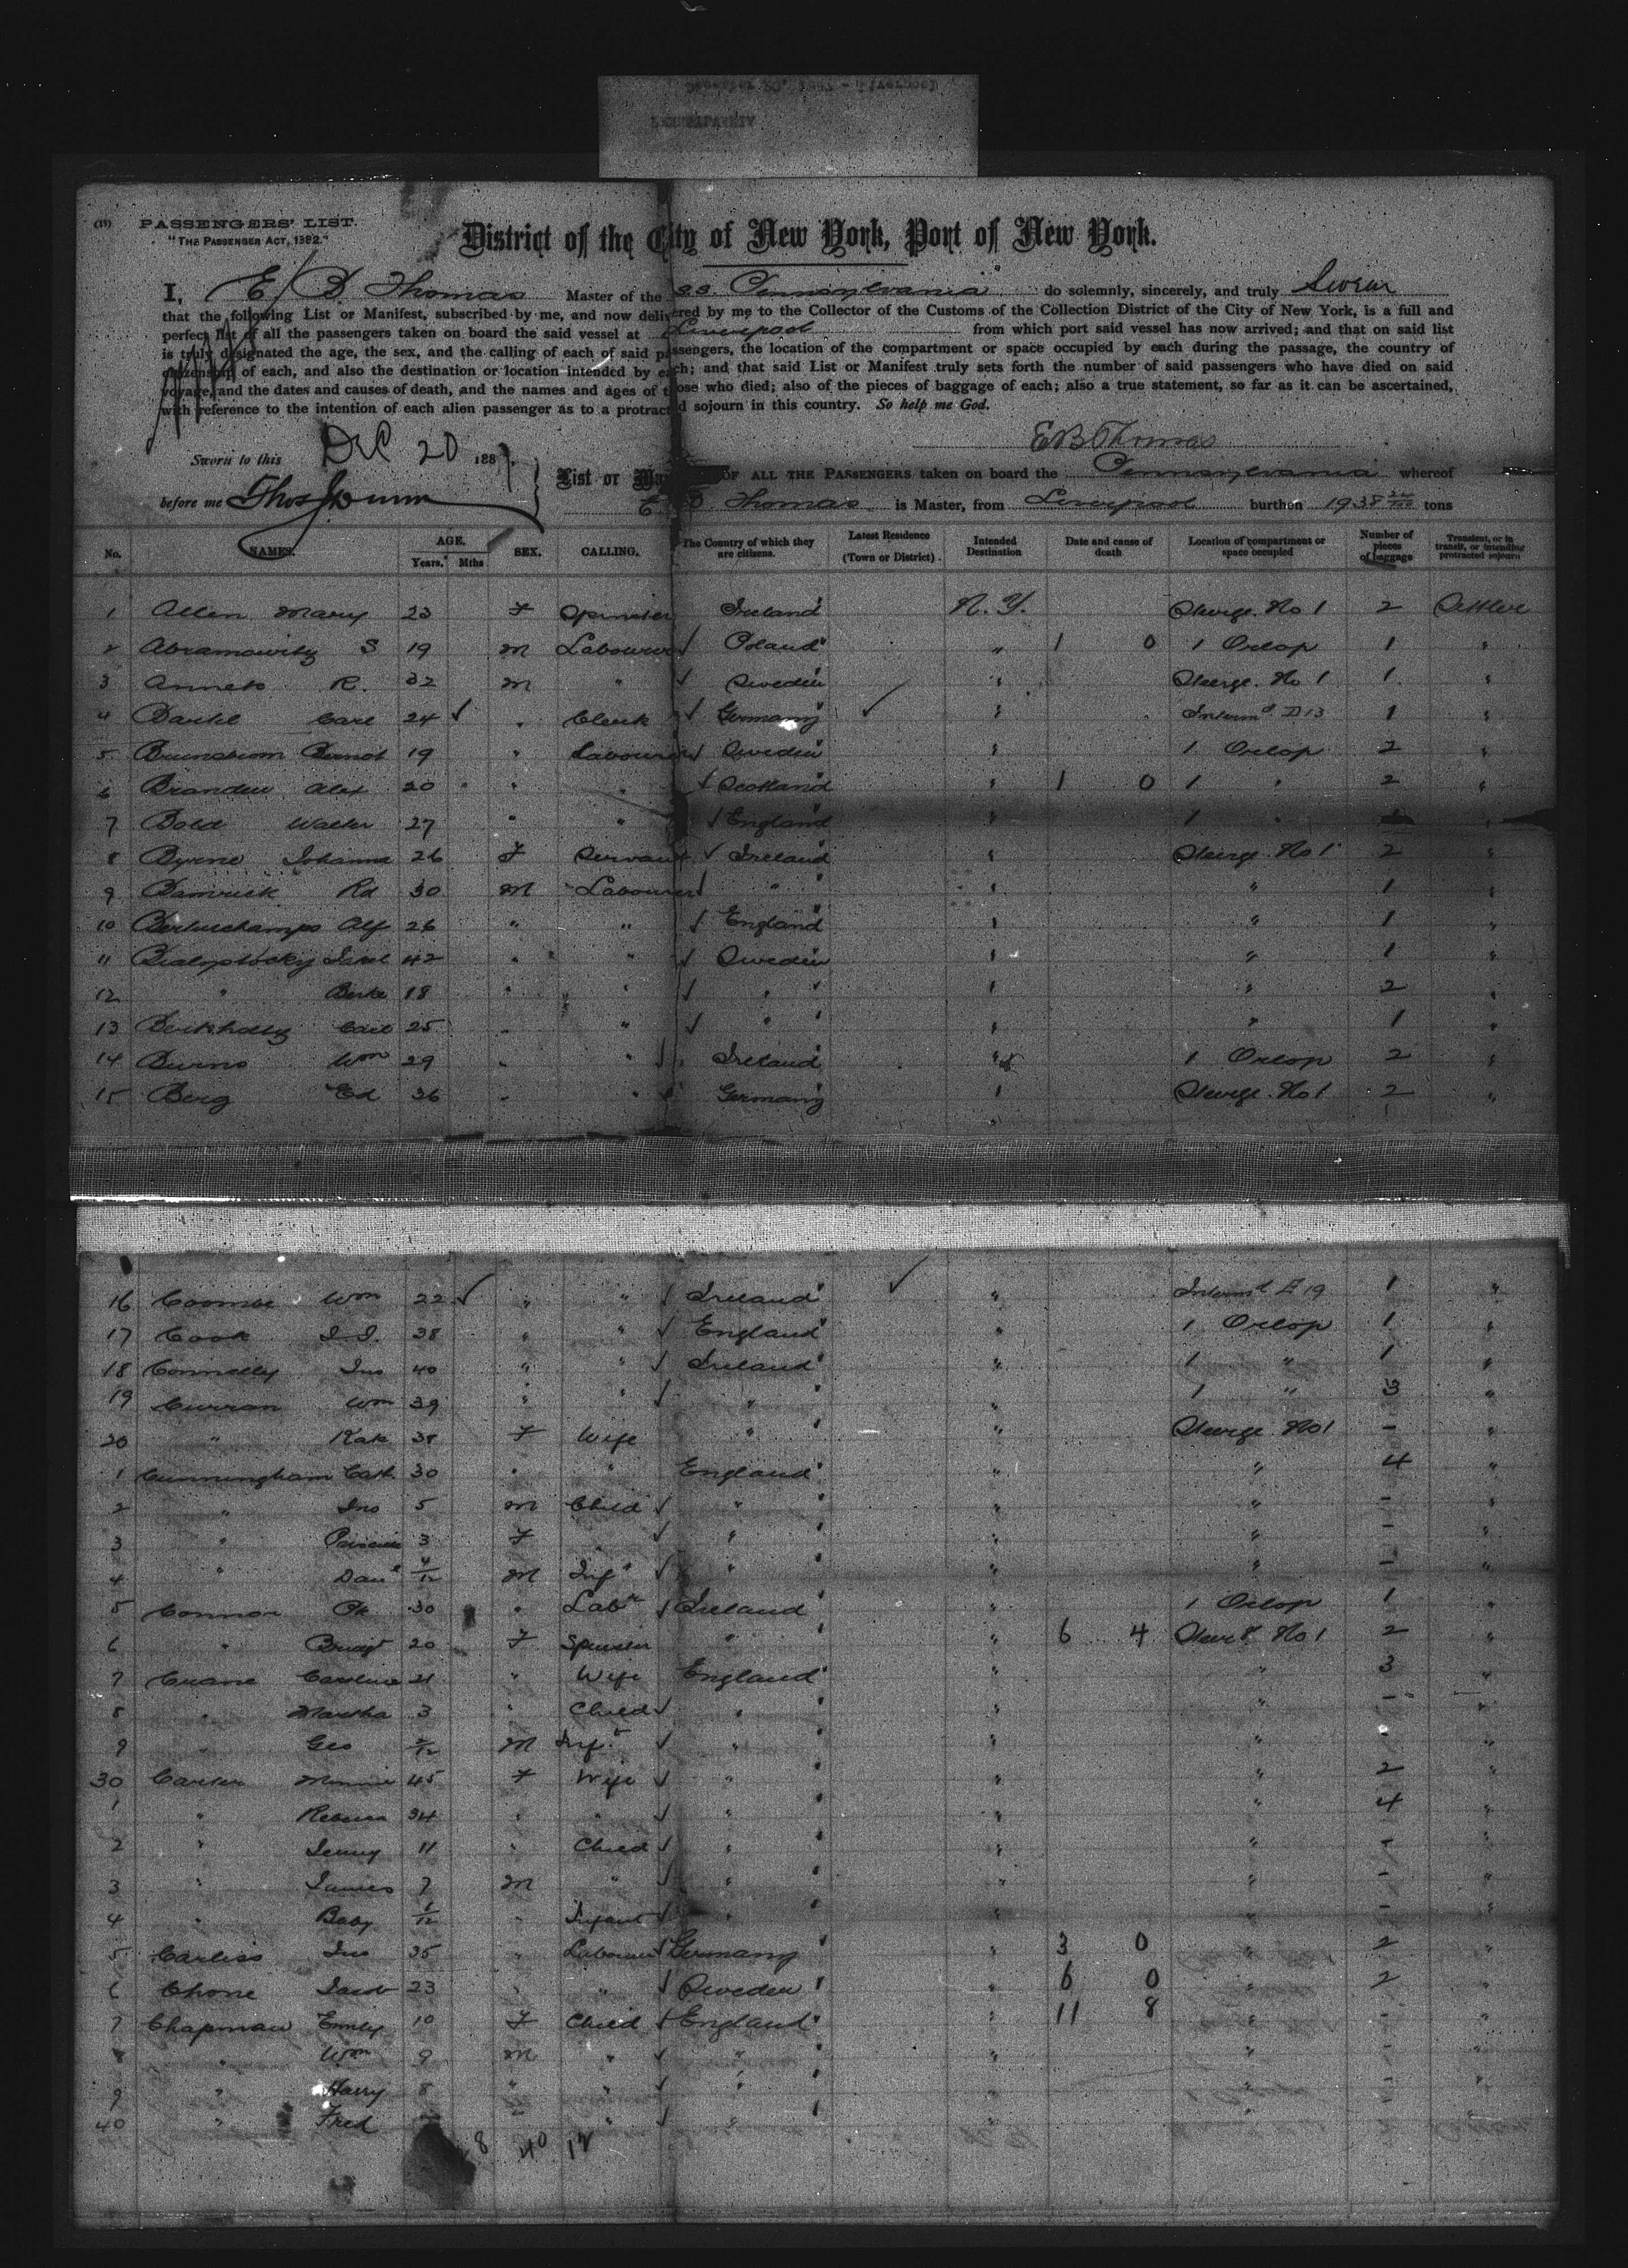 (15) PASSENGERS' LIST.
"THE PASSENGER ACT, 1882."
District of the City of New York, Port of New York.
I, E. B. Thomas Master of the SS Pennsylvania do solemnly, sincerely, and truly Swear
that the following List or Manifest, subscribed by me, and now delivered by me to the Collector of the Customs of the Collection District of the City of New York, is a full and
perfect list of all the passengers taken on board the said vessel at Liverpool from which port said vessel has now arrived; and that on said list
is truly designated the age, the sex, and the calling of each of said passengers, the location of the compartment or space occupied by each during the passage, the country of
citizenship of each, and also the destination or location intended by each; and that said List or Manifest truly sets forth the number of said passengers who have died on said
voyage, and the dates and causes of death, and the names and ages of those who died; also of the pieces of baggage of each; also a true statement, so far as it can be ascertained,
with reference to the intention of each alien passenger as to a protracted sojourn in this country. So help me God.
E B Thomas
Sworn to this Dec 20 188
before me Thos Dunn
List or OF ALL THE PASSENGERS taken on board the Pennsylvania whereof
E. B. Thomas is Master, from Liverpool burthen 1938 tons
No. NAMES. AGE. Years. Mths SEX. CALLING. The Country of which they are citizens. Latest Residence (Town or District). Intended Destination Date and cause of death Location of compartment or space occupied Number of pieces of baggage Transient, or in transit, or intending protracted sojourn
1 Allen Mary 23 F Spinster Ireland N.Y. Steerge. No 1 2 Settler
2 Abramowitz S 19 M Labourer Poland " 1 0 1 Orlop 1 "
3 R. 32 M " Sweden " Steerge. No 1 1 "
4 Carl 24 " Clerk Germany " Intermd D13 1 "
5 19 " Labourer Sweden " 1 Orlop 2 "
6 Alex 20 " " Scotland " 1 0 1 " 2 "
7 Bold Walter 27 " " England " 1 " "
8 Byrne Johanna 26 F Servant Ireland " Steerge. No 1 2 "
9 Rd 30 M Labourer " " " 1 "
10 Alf 26 " " England " " 1 "
11 42 " " Sweden " " 1 "
12 " 18 " " " " " 2 "
13 Carl 25 " " " " " 1 "
14 Burns Wm 29 " " Ireland " 1 Orlop 2 "
15 Berg Ed 36 " " Germany " Steerge. No 1 2 "
16 Coombe Wm 22 " " Ireland " Intermd 19 1 "
17 Cook J.J. 38 " " England " 1 Orlop 1 "
18 Connelly Jno 40 " " Ireland " 1 " 1 "
19 Curran Wm 39 " " " " 1 " 3 "
20 " Kate 38 F Wife " " Steerge No 1 - "
1 Cunningham Cath 30 " " England " " 4 "
2 " Jno 5 M Child " " " - "
3 " 3 F " " " - "
4 " Danl M Inft " " " - "
5 Connor Pk 30 " Labr Ireland " 1 Orlop 1 "
6 " Bridgt 20 F Spinster " " 6 4 Steerg No 1 2 "
7 Crane Caroline 21 " Wife England " " 3 "
8 " Martha 3 " Child " " " - "
9 " Geo M Inft " " " - "
30 Carter Minnie 45 F Wife " " " 2 "
1 " Rebecca 34 " " " " " 4 "
2 " Jenny 11 " Child " " " - "
3 " James 7 M " " " " - "
4 " Baby 1/12 " Infant " " " - "
5 Carliss Jno 35 " Labourer Germany " 3 0 " 2 "
6 Chone 23 " " Sweden " 6 0 " 2 "
7 Chapman Emily 10 F Child England " 11 8 " - "
8 " Wm 9 M " " " " - "
9 " Harry 8 " " " " " - "
40 " Fred " " " " " "
8 40 12